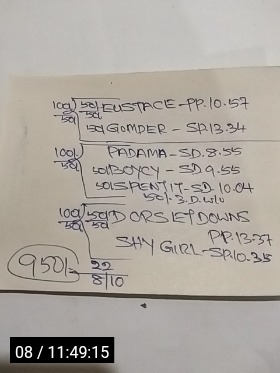 100/ 50/ EUSTACE-PP.10.57
50/ 50
50/ GOMDER - SP.13.34
100/ PADAMA-SD.8.55
50/ 50/ BOYCY-SD 9.55
50/ SPENT IT-SD. 10.04
50/. 3.D.
100/ 50/ DORSET DOWNS
50/ 50
PP.13.37
SHY GIRL-SP.10.35
950/- 22
8/10
08 / 11:49:15